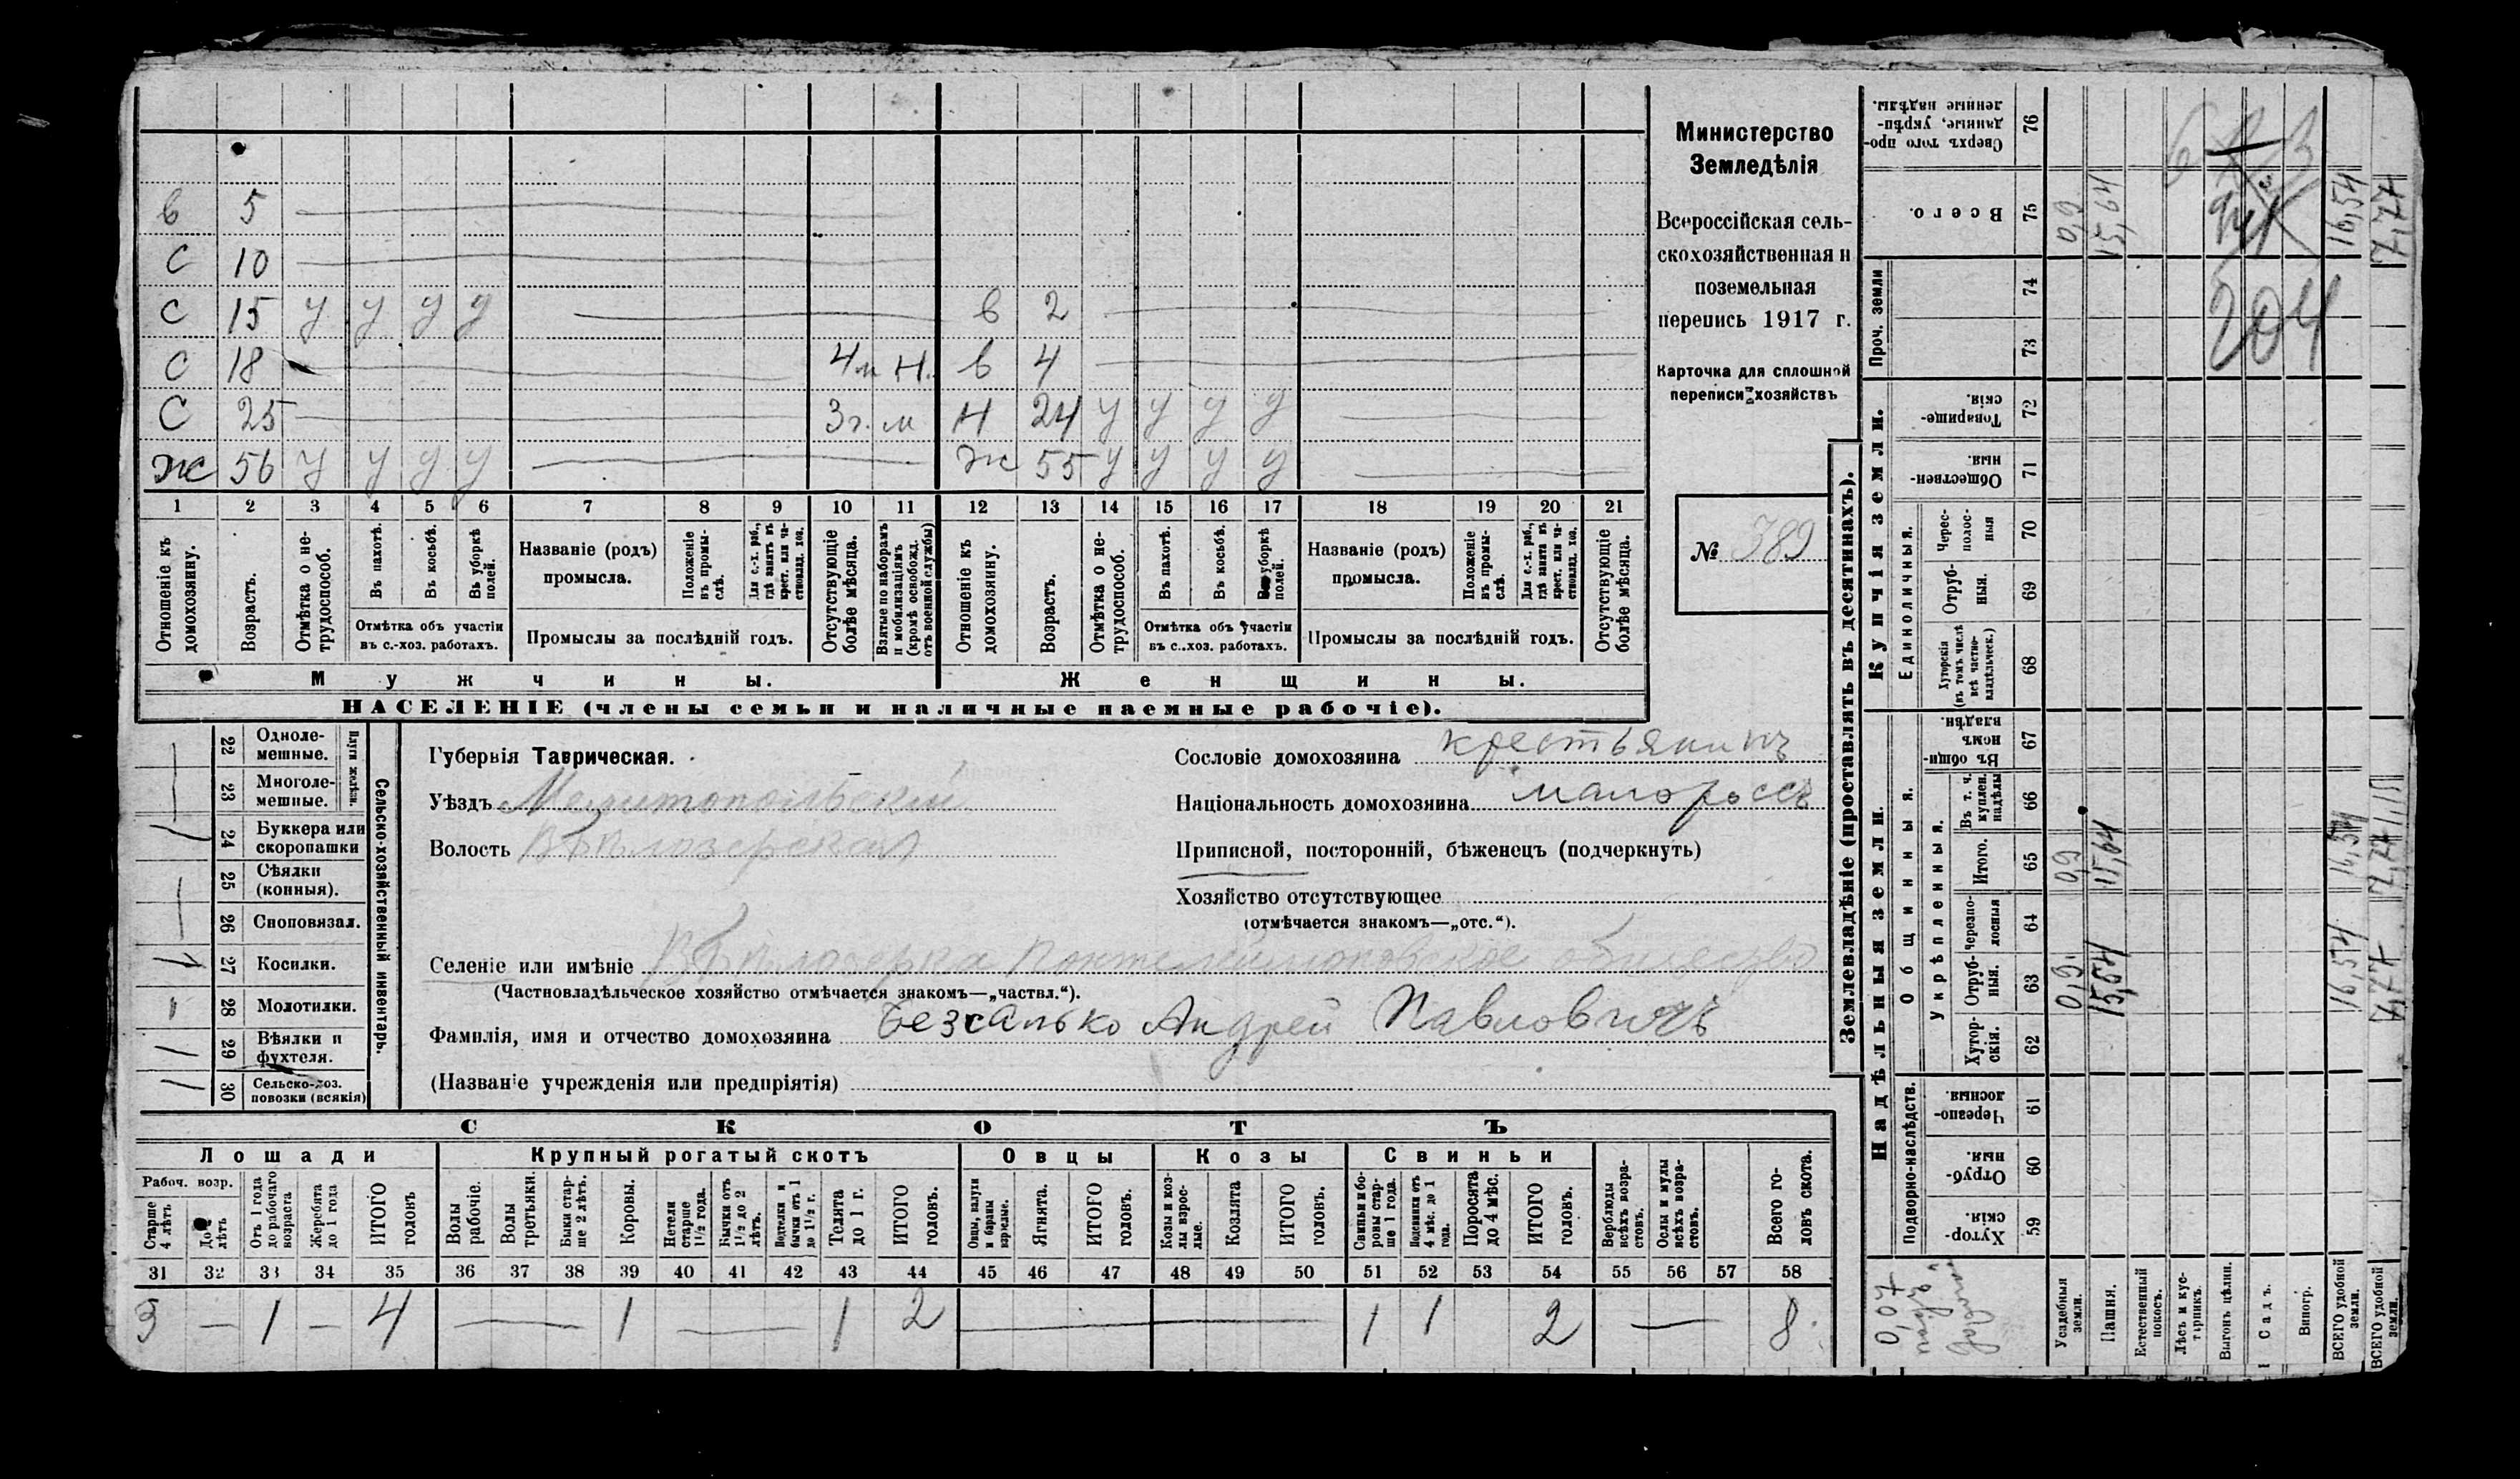 в 5
С 10
С 15 у у у у в 2
С 18 4м Н. в 4
С 25 3г. м Н 24 у у у у
Ж 56 у у у у Ж 55 у у у у
1 2 3 4 5 6 7 8 9 10 11 12 13 14 15 16 17 18 19 20 21
Отношеніе къ домохозяину.
Возрастъ.
Отмѣтка о нетрудоспособ.
Въ пахотѣ.
Въ косьбѣ.
Въ уборкѣ полей.
Отмѣтка объ участіи
въ с.-хоз. работахъ.
Названіе (родъ)
промысла.
Положеніе въ промыслѣ.
Для с.-х. раб., гдѣ занятъ въ крест. или частновлад. хоз.
Промыслы за послѣдній годъ.
Отсутствующіе болѣе мѣсяца.
Взятые по наборамъ и мобилизаціямъ (кромѣ освобожд. отъ военной службы)
Отношеніе къ домохозяину.
Возрастъ.
Отмѣтка о нетрудоспособ.
Въ пахотѣ.
Въ косьбѣ.
уборкѣ полей.
Отмѣтка объ участіи
въ с..хоз. работахъ.
Названіе (родъ)
промысла.
Положеніе въ промыслѣ.
Для с.-х. раб., гдѣ занята въ крест. или частновлад. хоз.
Промыслы за послѣдній годъ.
Отсутствующіе болѣе мѣсяца.
Мужчины. Женщины.
НАСЕЛЕНІЕ (члены семьи и наличные наемные рабочіе).
Министерство
Земледѣлія
Всероссійская сель-
скохозяйственная и
поземельная
перепись 1917 г.
Карточка для сплошной
переписи хозяйствъ
№ 389
Сельско-хозяйственный инвентарь.
Плуги желѣзн.
22 Однолемешные.
23 Многолемешные.
24 Буккера или скоропашки 1
25 Сѣялки (конныя).
26 Сноповязал.
27 Косилки. 1
28 Молотилки.
29 Вѣялки и фухтеля.
30 Сельско-хоз. повозки (всякія)
Губернія Таврическая.
Уѣздъ Мелитопольскій
Волость В Бѣлозерская
Сословіе домохозяина крестьянинъ
Національность домохозяина малороссъ
Приписной, посторонній, бѣженецъ (подчеркнуть)
Хозяйство отсутствующее
(отмѣчается знакомъ—„отс.“).
Селеніе или имѣніе В Бѣлозерка общество
(Частновладѣльческое хозяйство отмѣчается знакомъ—„частвл.“).
Фамилія, имя и отчество домохозяина Безсалько Андрей Павловичъ
(Названіе учрежденія или предпріятія)
СКОТЪ
Лошади Крупный рогатый скотъ Овцы Козы Свиньи
Рабоч. возр.
Старше 4 лѣтъ
До лѣтъ
Отъ 1 года до рабочаго возраста
Жеребята до 1 года
ИТОГО головъ
Волы рабочіе.
Волы третьяки.
Быки старше 2 лѣтъ.
Коровы.
Нетели старше 1½ года.
Бычки отъ 1½ до 2 лѣтъ.
бычки отъ 1 до 1½ г.
Телята до 1 г.
ИТОГО головъ.
Овцы, валухи и бараны взрослые.
Ягнята.
ИТОГО головъ.
Козы и козлы взрослые.
Козлята
ИТОГО головъ.
Свиньи и боровы старше 1 года.
Подсвинки отъ 4 мѣс. до 1 года.
Поросята до 4 мѣс.
ИТОГО головъ.
Верблюды всѣхъ возрастовъ.
Ослы и мулы всѣхъ возрастовъ.
Всего головъ скота.
31 32 33 34 35 36 37 38 39 40 41 42 43 44 45 46 47 48 49 50 51 52 53 54 55 56 57 58
3 — 1 — 4 — 1 — 1 2 — 1 1 2 — 8
Землевладѣніе (проставлять въ десятинахъ).
Купчія земли.
Надѣльныя земли.
Проч. земли
Сверхъ того проданные, укрѣпленные надѣлы. 76
Всего. 75
74
73
Товарищескія. 72
Общественныя. 71
Единоличныя.
Чересполосныя 70
Отрубныя. 69
Хуторскія (въ томъ числѣ всѣ частновладѣльческ.) 68
Общинныя.
Въ общинномъ владѣн. 67
Укрѣпленныя.
Въ т. ч. куплен. надѣлы 66
Итого. 65
Черезполосныя 64
Отрубныя. 63
Хуторскія. 62
Подворно-наслѣдств.
Черезполосныя. 61
Отрубныя. 60
Хуторскія. 59
Усадебныя земли. 0,9 0,9 0,9
Пашня. 15,54 15,64
Естественный покосъ.
Лѣсъ и кустарникъ.
Выгонъ цѣлин.
Садъ.
Виногр.
ВСЕГО удобной земли. 16,54 16,54 16,54
ВСЕГО удобной земли. 17,77
0,07
204